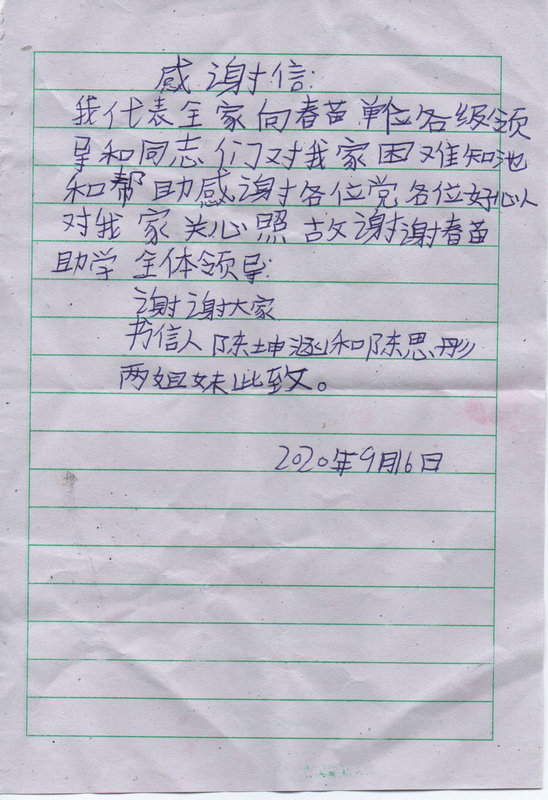 感谢信:
我代表全家向春苗单位各级领
导和同志们对我家困难知池
和帮助感谢各位党各位好心人
对我家关心照故谢谢春苗
助学全体领导:
谢谢大家
书信人陈坤涵和陈思彤
两姐妹此致。
2020年9月16日